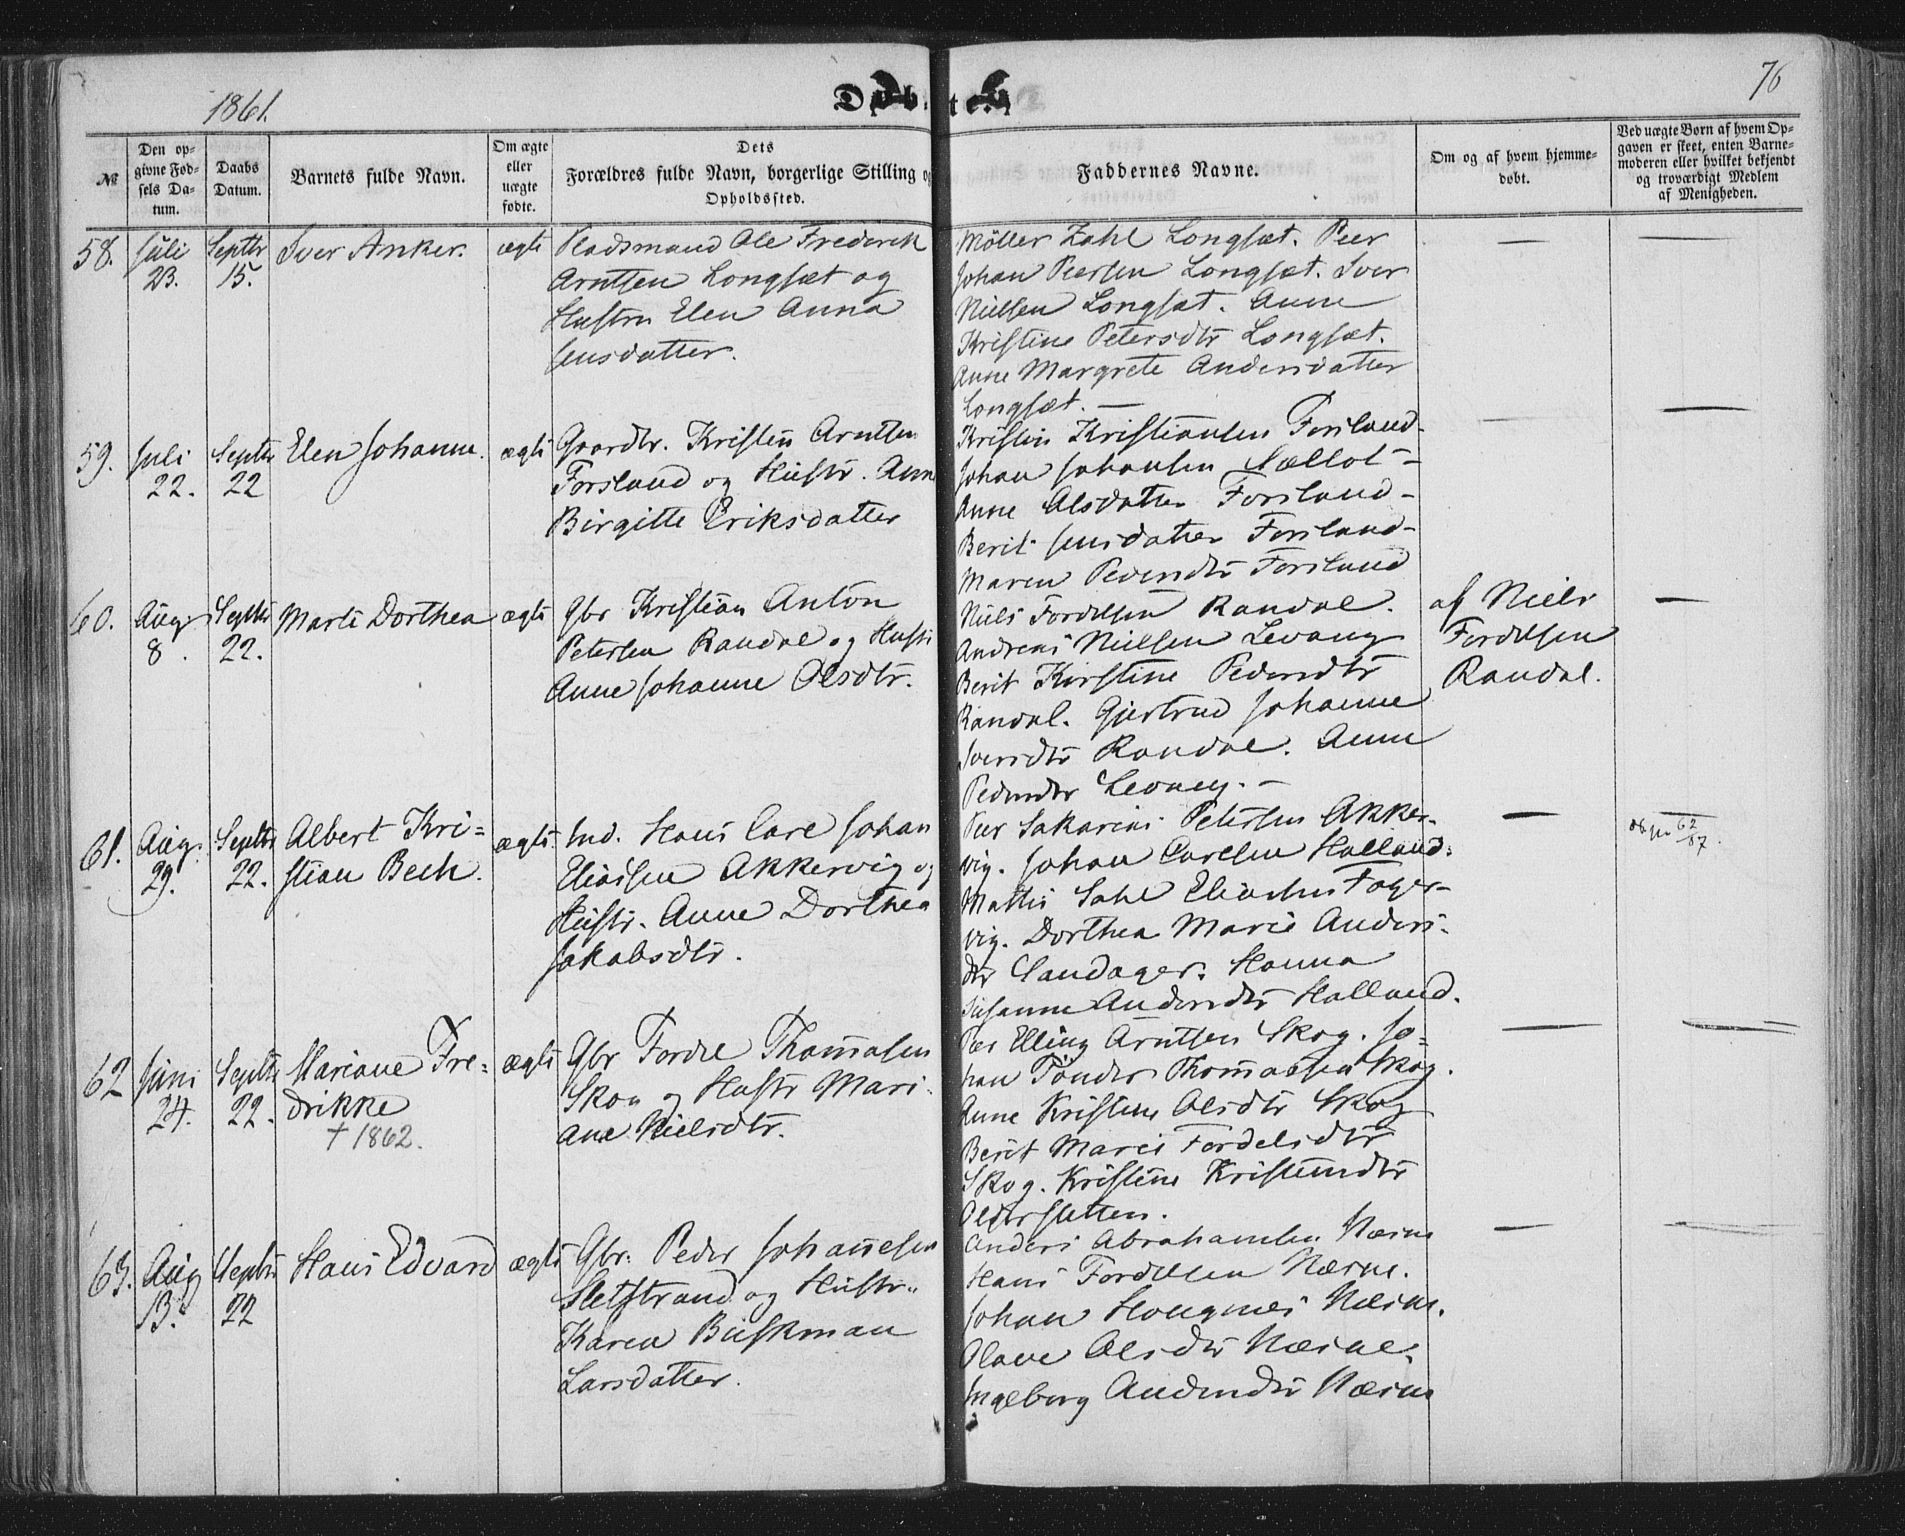 1861.
Døbte.
76
№
Den op-
givne Fød-
sels Da-
tum.
Daabs
Datum.
Barnets fulde Navn.
Om ægte
eller
uægte
fødte.
Dets
Forældres fulde Navn, borgerlige Stilling og
Opholdssted.
Faddernes Navne.
Om og af hvem hjemme-
døbt.
Ved uægte Børn af hvem Op-
gaven er skeet, enten Barne-
moderen eller hvilket bekjendt
og troværdigt Medlem
af Menigheden.
58.
Juli
23.
Septbr
15.
Iver Anker.
ægte
Pladsmand Ole Frederik
Arntsen Longsæt og
Hustru Elen Anna
Jensdatter.
Møller Zahl Longsæt. Peer
Johan Peersen Longsæt. Iver
Nielsen Longsæt. Anne
Kristine Petersdtr Longsæt.
Anne Margrete Andersdatter
Longsæt. —
59.
Juli
22.
Septbr
22
Elen Johanne.
ægte
Gaardbr. Kristen Arntsen
Forsland og Hustr. Anne
Birgitte Eriksdatter
Kristen Kristiansen Forsland-
Johan Johansen -
Anne Olsdatter Forsland-
Berit Jensdatter Forsland-
Maren Pedersdtr Forsland
60.
Aug
8.
Septbr
22.
Marte Dorthea
ægte
Gbr Kristian Anton
Petersen Randal og Hustr
Anne Johanne Olsdtr.
Niels Fordelsen Randal.
Andreas Nielsen Levang
Berit Kirstine Pedersdtr
Randal. Gjertrud Johanne
Iversdtr Randal. Anne
Pedersdtr Levang. —
af Niels
Fordelsen
Randal.
61.
Aug.
29.
Septbr
22.
Albert Kri=
stian Bech.
ægte
Ind. Hans Carl Johan
Eliassen Akkervig og
Hustr. Anne Dorthea
Jakobsdtr.
Peer Sakarias Petersen Akker-
vig. Johan Carlsen Halland.
Mathis Sahl Eliassen Fager-
vig. Dorthea Marie Anders-
dtr Sandager. Hanna
Susanne Andersdtr Halland.
62
87.
62
Juni
24.
Septbr
22.
Mariane Fre=
drikke
† 1862.
ægte
Gbr Fordel Thomasen
Skog og Hustr Mari-
ane Nielsdtr.
Peer Elling Arntsen Skog. Jo=
han Tønder Thomassen Skog.
Anne Kristine Olsdtr Skog
Berit Marie Fordelsdtr
Skog. Kristine Kristensdtr
Oldersletten.
63.
Aug
13.
Septbr
22
Hans Edvard
ægte
Gbr. Peder Johannesen
Sletstrand og Hustr.
Karen Buskman
Larsdatter.
Anders Abrahamsen Næsne
Hans Fordelsen Næsne.
Johan Hougnes Næsne.
Olave Olsdtr Næsne.
Ingeborg Andersdtr Næsne